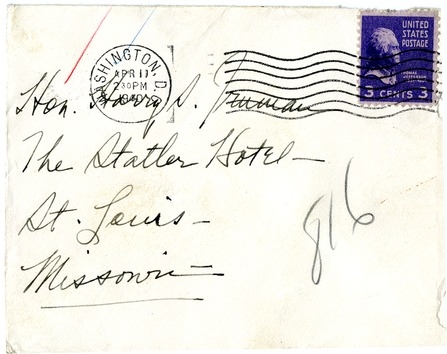 WASHINGTON, D.C.
APR 11
2 30 PM
1940
UNITED
STATES
POSTAGE
THOMAS
JEFFERSON
3 CENTS 3
Hon. Harry S. Truman
The Statler Hotel—
St. Louis—
Missouri—
816